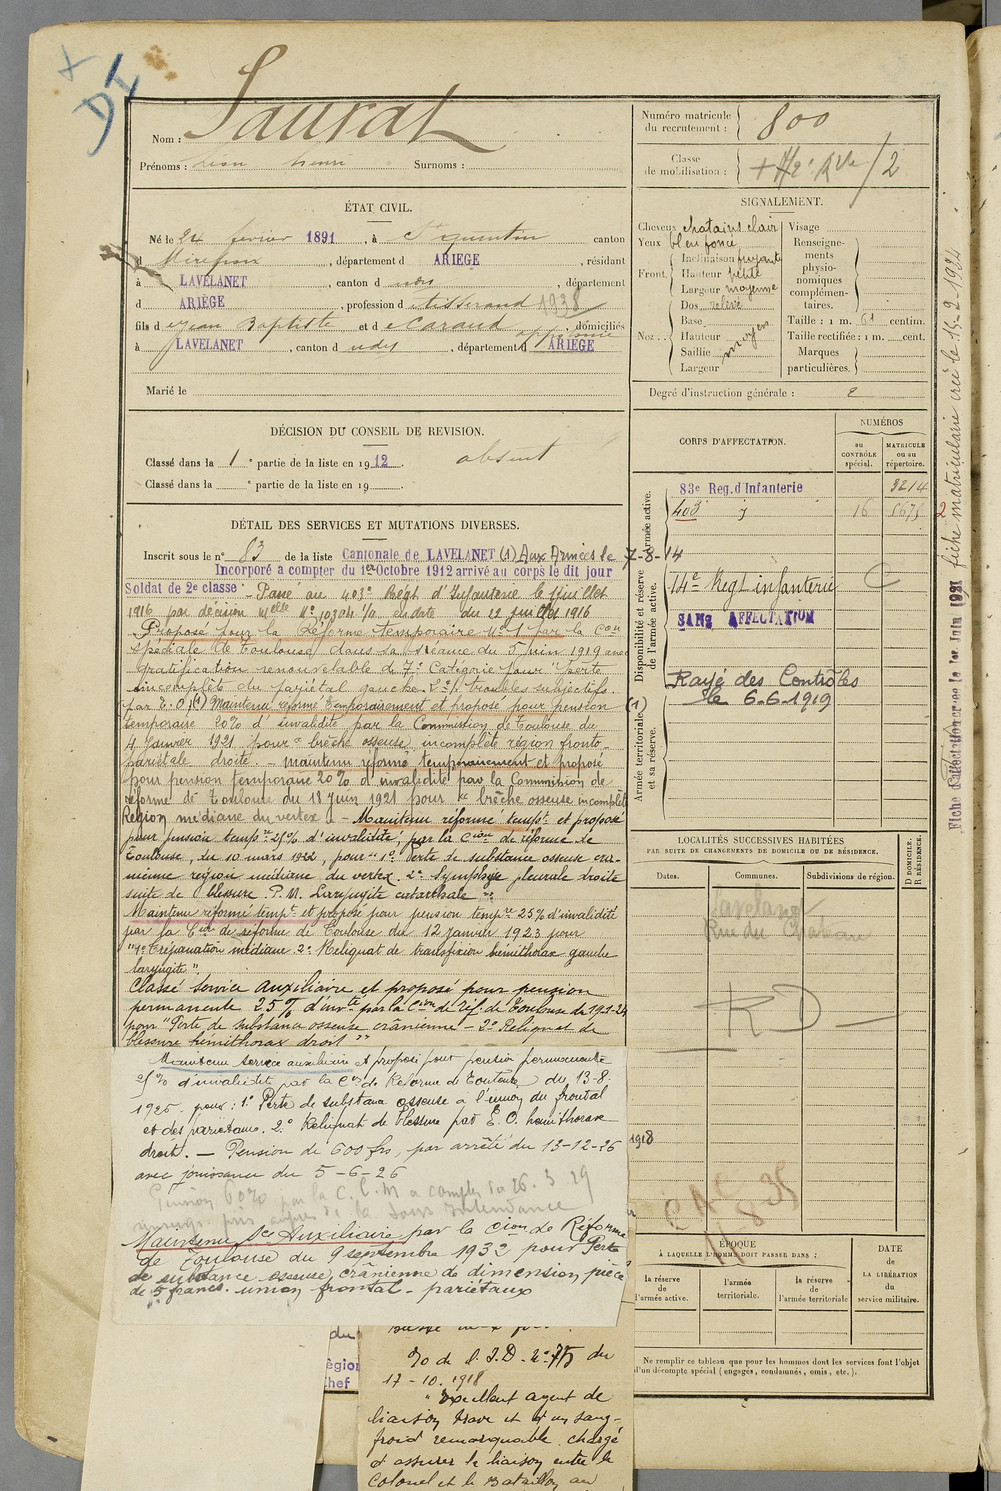 DI
Nom : Saurat
Prénoms : Léon Henri Surnoms :
Numéro matricule du recrutement : 800
Classe de mobilisation :
ÉTAT CIVIL.
Né le 24 février 1891, à St Quentin canton
d Mirepoix, département d ARIEGE, résidant
à LAVELANET, canton d udit, département
d ARIÈGE, profession d Tisserand 1938
fils d Jean Baptiste et d Caraud, domiciliés
à LAVELANET, canton d udit, département d ARIEGE
Marié le
SIGNALEMENT.
Cheveux chatains clair
Yeux bleu foncé
Front. Inclinaison fuyante
Hauteur petite
Largeur moyenne
Nez.. Dos relevé
Base
Hauteur moyen
Saillie
Largeur
Visage
Renseignements physionomiques complémentaires.
Taille : 1 m. 61 centim.
Taille rectifiée : 1 m. cent.
Marques particulières.
Degré d'instruction générale : 2
DÉCISION DU CONSEIL DE REVISION.
Classé dans la 1e partie de la liste en 1912. absent
Classé dans la e partie de la liste en 19 .
CORPS D'AFFECTATION.
NUMÉROS
au CONTRÔLE spécial.
MATRICULE ou au répertoire.
Armée active.
83e Reg. d'Infanterie 3214
403 16
Disponibilité et réserve de l'armée active.
14e Regt infanterie
SANS AFFECTATION
Rayé des Contrôles
le 6.6.1919
Armée territoriale et sa réserve.
DÉTAIL DES SERVICES ET MUTATIONS DIVERSES.
Inscrit sous le n° 83 de la liste Cantonale de LAVELANET (1) Aux Armées le 7-8-14
Incorporé a compter du 1er Octobre 1912 arrivé au corps le dit jour
Soldat de 2e classe - Passé au 403e Régt d'Infanterie le 11 juillet
1916 par décision Melle N° 10304 1/10 en date du 12 juillet 1916
Proposé pour la Réforme temporaire N° 1 par la Con
spéciale de Toulouse dans sa séance du 5 juin 1919 avec
Gratification renouvelable de 7e Catégorie pour "perte
incomplète du pariétal gauche. troubles subjectifs
par E.O. (1) Maintenu réformé temporairement et proposé pour pension (1)
temporaire 20% d'invalidité par la Commission de Toulouse du
4 Janvier 1921 pour "brêche osseuse incomplète région fronto-
pariétale droite. - maintenu réformé temporairement et proposé
pour pension temporaire 20% d'invalidité par la Commission de
réforme de Toulouse du 18 juin 1921 pour "brêche osseuse incomplète
Région médiane du vertex". - Maintenu réformé tempt et proposé
pour pension tempre 25% d'invalidité, par la Cion de réforme de
Toulouse, du 10 mars 1922, pour "1° Perte de substance osseuse crâ-
nienne région médiane du vertex. 2° Symphyse pleurale droite
suite de blessure. P.M. Laryngite catarrhale"
Maintenu réformé tempt et proposé pour pension tempre 25% d'invalidité
par la Cion de réforme de Toulouse du 12 janvier 1923 pour
"1° Trépanation médiane 2° Reliquat de transfixion hémithorax gauche
laryngite".
Classé Service Auxiliaire et proposé pour pension
permanente 25% d'invté par la Cion de réf. de Toulouse du 19-2-24
pour "Perte de substance osseuse crânienne - 2° Reliquat de
blessure hémithorax droit"
Maintenu service auxiliaire et proposé pour pension permanente
25% d'invalidité par la Con de Réforme de Toulouse du 13-8-
1925 pour : 1° Perte de substance osseuse à l'union du frontal
et des pariétaux. 2° Reliquat de blessure par E.O. hémithorax
droit. - Pension de 600 frs, par arrêté du 13-12-26
avec jouissance du 5-6-26
Pension 60% par la C.C.M a compter du 26.3.29
Maintenu Sce Auxiliaire par la Cion de Réforme
de Toulouse du 9 septembre 1932 pour Perte
de substance osseuse crânienne de dimension pièce
de 5 francs. union frontal - pariétaux
du
égion
Chef
Jo de S.I.D. du
17-10-1918
"Excellent agent de
liaison brave et d'un sang-
froid remarquable. chargé
d'assurer la liaison entre le
Colonel et le Bataillon au
LOCALITÉS SUCCESSIVES HABITÉES
PAR SUITE DE CHANGEMENTS DE DOMICILE OU DE RÉSIDENCE.
Dates. Communes. Subdivisions de région.
D DOMICILE. R RÉSIDENCE.
Lavelanet
Rue du Chateau
RD
1918
ÉPOQUE
À LAQUELLE L'HOMME DOIT PASSER DANS :
la réserve de l'armée active.
l'armée territoriale.
la réserve de l'armée territoriale
DATE de LA LIBÉRATION du service militaire.
Ne remplir ce tableau que pour les hommes dont les services font l'objet
d'un décompte spécial (engagés, condamnés, omis, etc.).
fiche matriculaire crée le 15-2-1924